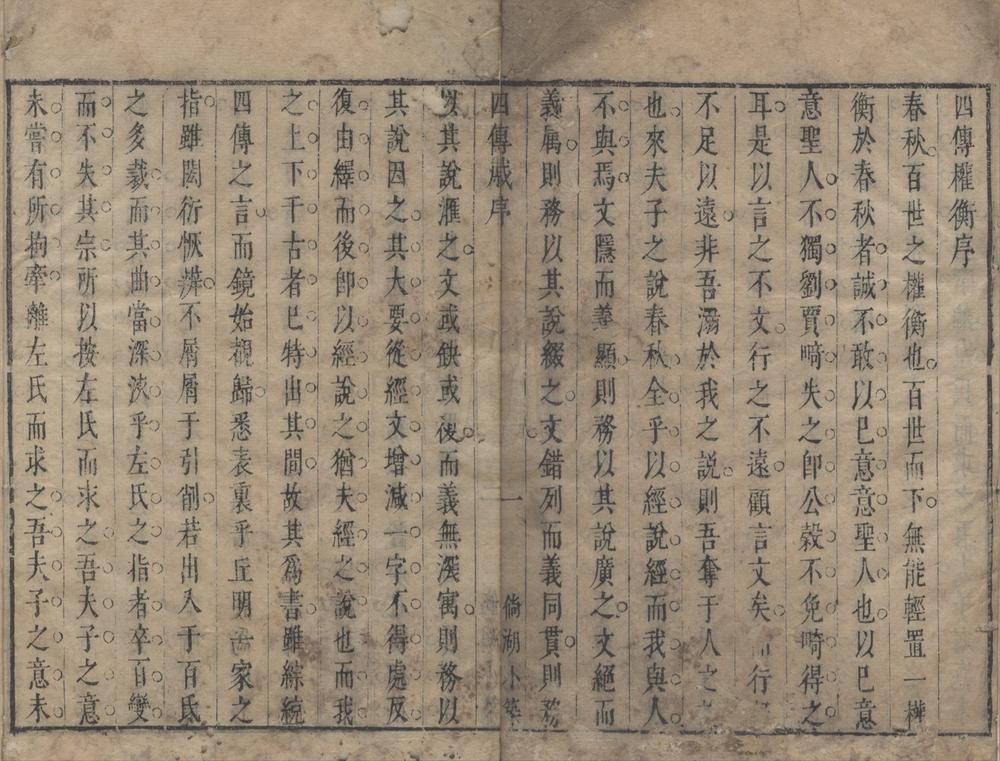 四傳權衡序
春秋百世之權衡也百世而下無能輕置一權
衡於春秋者誠不敢以已意意聖人也以已意
意聖人不獨劉賈畸失之卽公穀不免畸得之
耳是以言之不文行之不遠顧言文矣而行
不足以遠非吾溺於我之說則吾奪于人之
也來夫子之說春秋全乎以經說經而我與人
不與焉文隱而義顯則務以其說廣之文絕而
義属則務以其說綴之文錯列而義同貫則務
四傳序
一
倘湖小築
以其說滙之文或缺或複而義無深寓則務以
其說因之其大要從經文增減一字不得處反
復由繹而後卽以經說之猶夫經之說也而我
之上下千古者已特出其間故其爲書雖綜統
四傳之言而鏡始觀歸悉表裏乎丘明世家之
指雖閎衍恢漭不屑屑于引削若出入于百氏
之多裁而其曲當深浹乎左氏之指者卒百變
而不失其宗所以按左氏而求之吾夫子之意
未嘗有所拘牽離左氏而求之吾夫子之意未